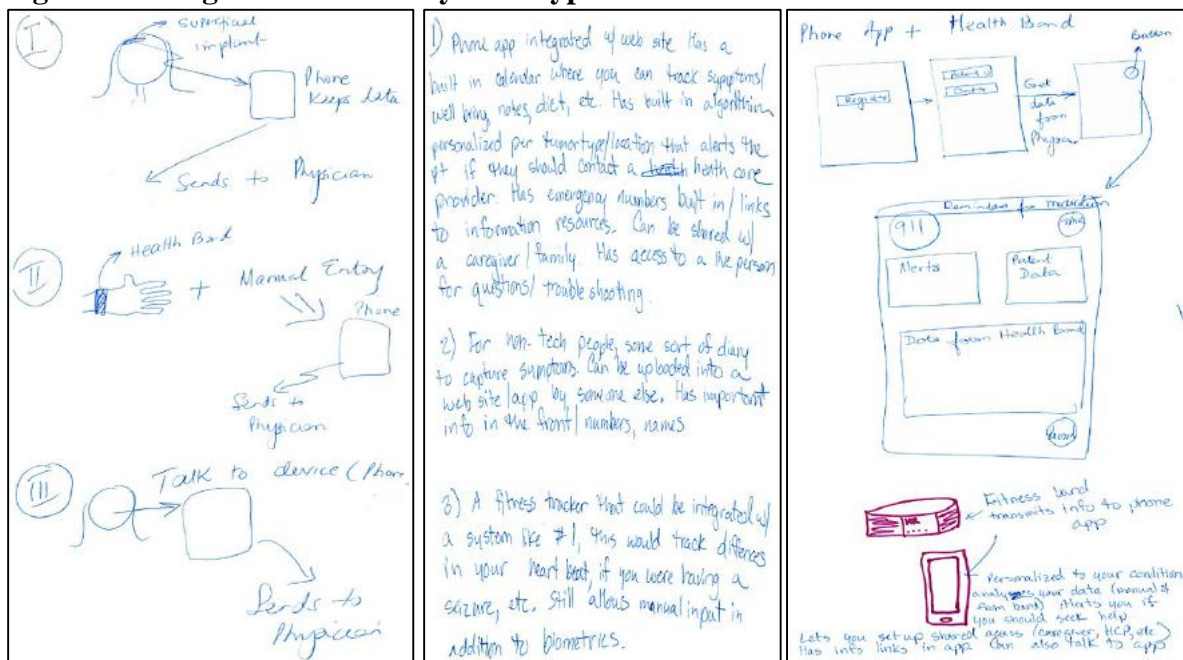 I
Superficial
implant
Phone
keeps data
Sends to Physician
II
Health Band
+ Manual Entry
Phone
Sends to
Physician
III
Talk to device (Phone
Sends to
Physician
1) Phone app integrated w/ web site Has a
built in calendar where you can track symptoms/
well being, notes, diet, etc. Has built in algorithim
personalized per tumor type/location that alerts the
pt if they should contact a health care
provider. Has emergency numbers built in/ links
to information resources. Can be shared w/
a caregiver/family. Has access to a live person
for questions/ trouble shooting.
2) For non-tech people, some sort of diary
to capture symptoms. Can be uploaded into a
web site/app by someone else. Has important
info in the front/ numbers, names
3) A fitness tracker that could be integrated w/
a system like #1, this would track diffences
in your heart beat, if you were having a
seizure, etc. Still allows manual input in
addition to biometrics.
Phone App + Health Band
Button
Register
Get
data
from
Physician
Reminders for medication
911
Alerts
Patient
Data
Data from Health Band
Fitness band
transmits info to phone
app
Personalized to your condition
analyzes your data (manual &
from band) Alerts you if
you should seek help
Lets you set up shared access (caregiver, HCP, etc)
Has info links in app Can also talk to app